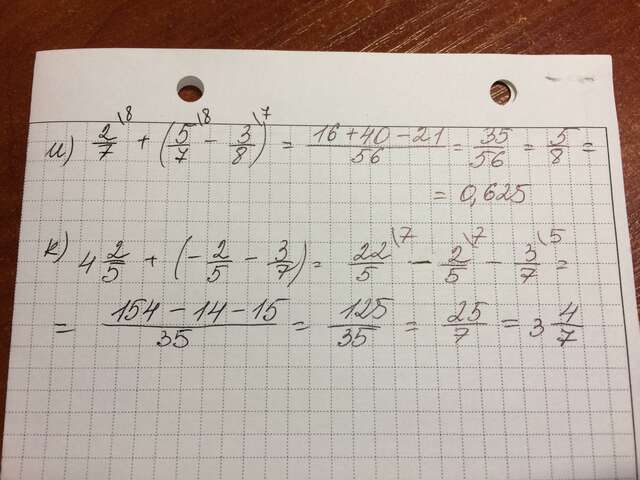 и) 2/7 \8 + (5/7 \8 - 3/8) \7 = 16+40-21/56 = 35/56 = 5/8 =
= 0,625
к) 4 2/5 + (-2/5 - 3/7) = 22/5 \7 - 2/5 \7 - 3/7 \5 =
= 154-14-15/35 = 125/35 = 25/7 = 3 4/7